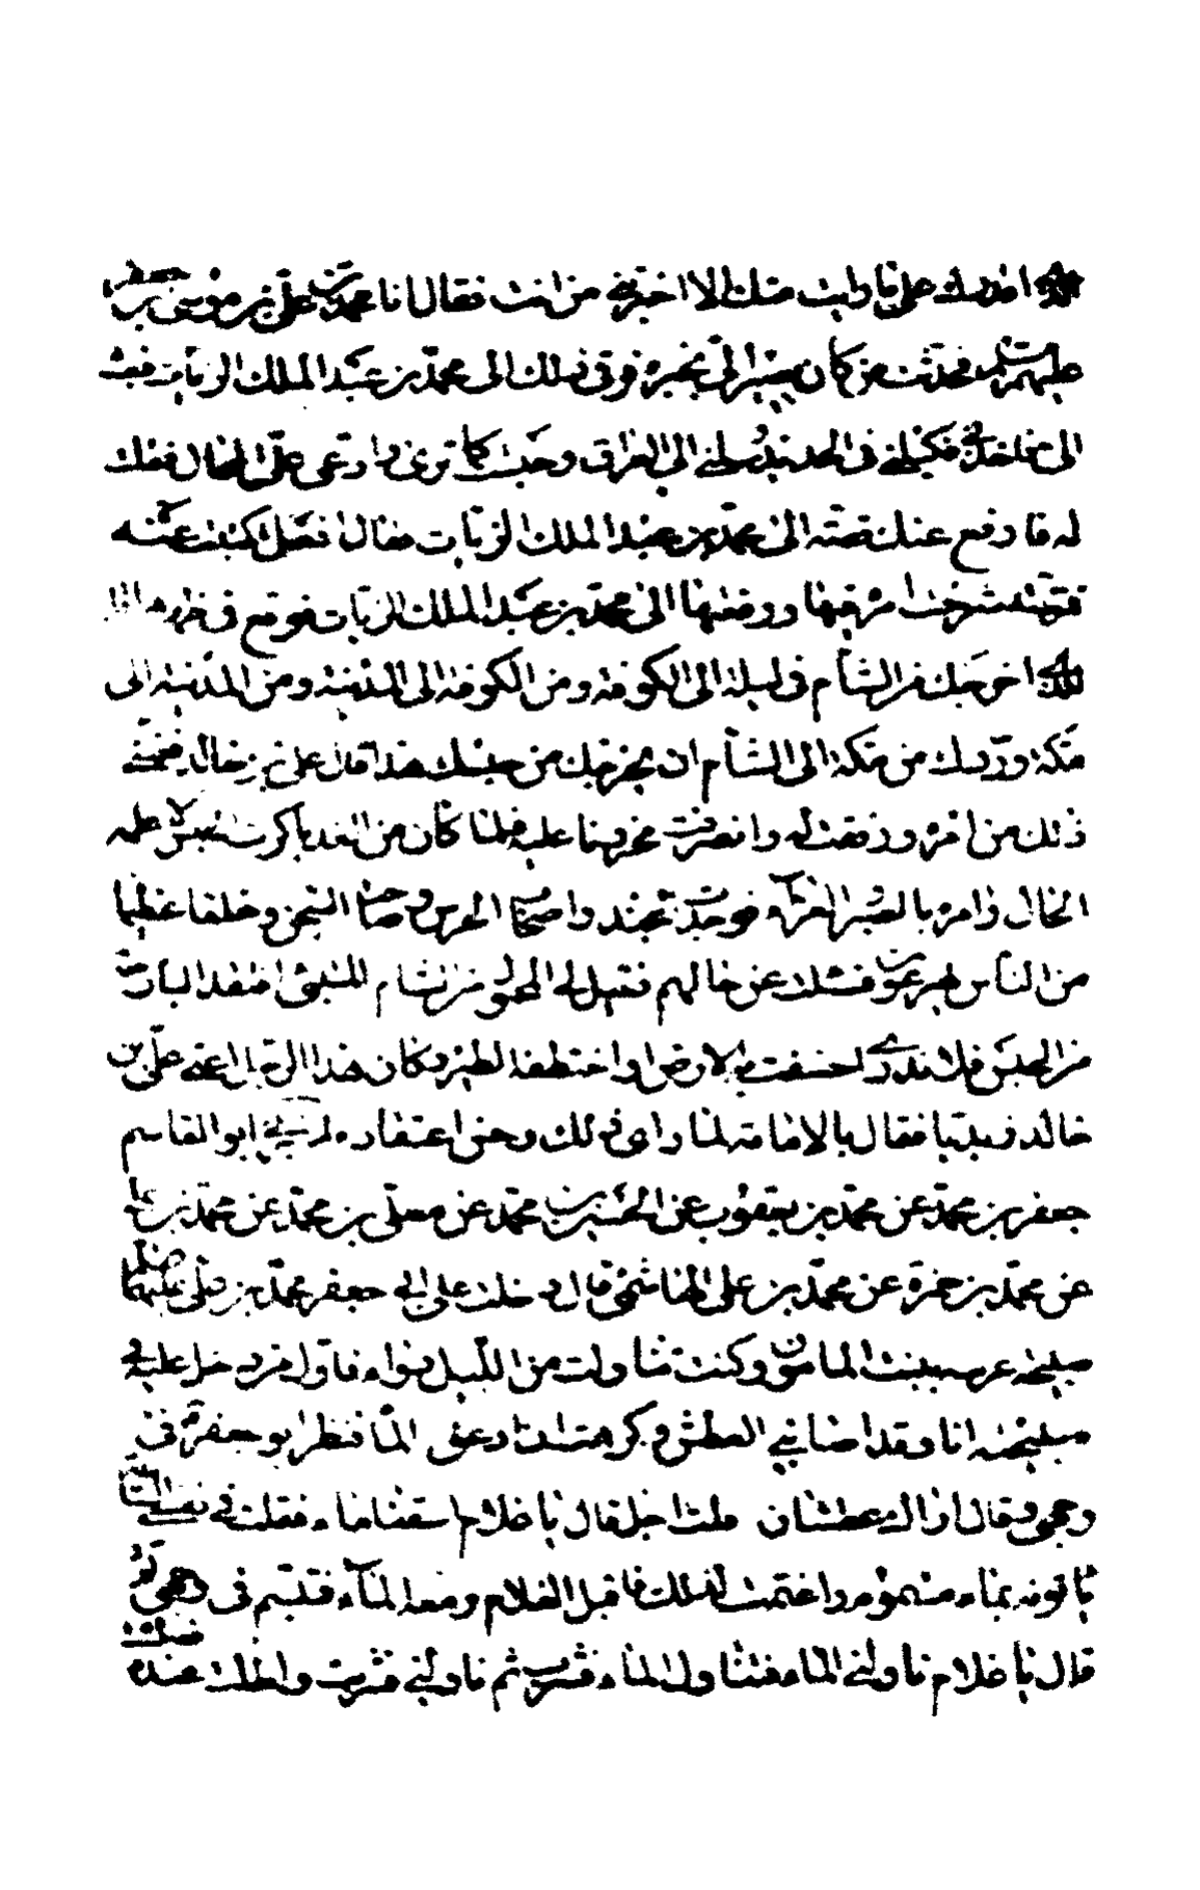 الذي اقدرك على ما رأيت منك الا اخبرتني من انت فقال انا محمد بن علي بن موسى بن جعفر
عليهم السلم فحدثت من كان يصير الي بخبره فرقي ذلك الى محمد بن عبد الملك الزيات فبعث
الي فاخذني فكبلني في الحديد وحملني الى العراق وحبست كما ترى وادعى علي المحال فقلت
له فارفع عنك قصة الى محمد بن عبد الملك الزيات فقال افعل فكتبت عنه
قصة شرحت امره فيها ورفعتها الى محمد بن عبد الملك الزيات فوقع في ظهرها قل
للذي اخرجك من الشأم في ليلة الى الكوفة ومن الكوفة الى المدينة ومن المدينة الى
مكة وردك من مكة الى الشأم ان يخرجك من حبسك هذا قال علي بن خالد فغمني
ذلك من امره ورققت له وانصرفت محزونا عليه فلما كان من الغد باكرت الحبس لاعلمه
الحال وامره بالصبر والعزاء فوجدت الجند واصحاب الحرس وصاحب السجن وخلقا عظيما
من الناس يهرعون فسئلت عن حالهم فقيل لي المحمول من الشام المتنبئ افتقد البارحة
من الحبس فلا ندري اخسفت به الارض او اختطفه الطير وكان هذا الرجل اعني علي بن
خالد زيديا فقال بالامامة لما راى ذلك وحسن اعتقاده اخبرني ابو القاسم
جعفر بن محمد عن محمد بن يعقوب عن الحسين بن محمد عن معلى بن محمد عن محمد بن علي
عن محمد بن حمزة عن محمد بن علي الهاشمي قال دخلت على ابي جعفر محمد بن علي عليهما السلم
صبيحة عرسه ببنت المأمون وكنت تناولت من الليل دواء فاول من دخل عليه في
صبيحته انا وقد اصابني العطش وكرهت ان ادعو الماء فنظر ابو جعفر في
وجهي وقال اراك عطشان قلت اجل قال يا غلام اسقنا ماء فقلت في نفسي الساعة
يأتونه بماء مسموم واغتممت لذلك فاقبل الغلام ومعه الماء فتبسم في وجهي ثم
قال يا غلام ناولني الماء فتناول الماء فشرب ثم ناولني فشربت واطلت عنده